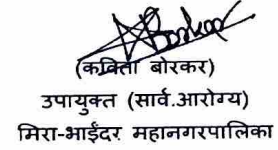 (कविता बोरकर)
उपायुक्त (सार्व.आरोग्य)
मिरा-भाईंदर महानगरपालिका